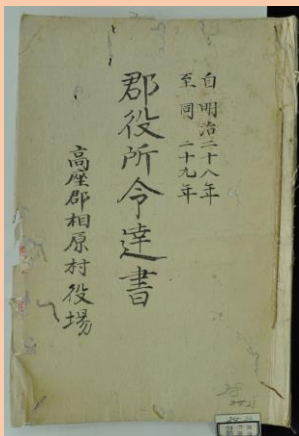 自明治二十八年
至同二十九年
郡役所令達書
高座郡相原村役場